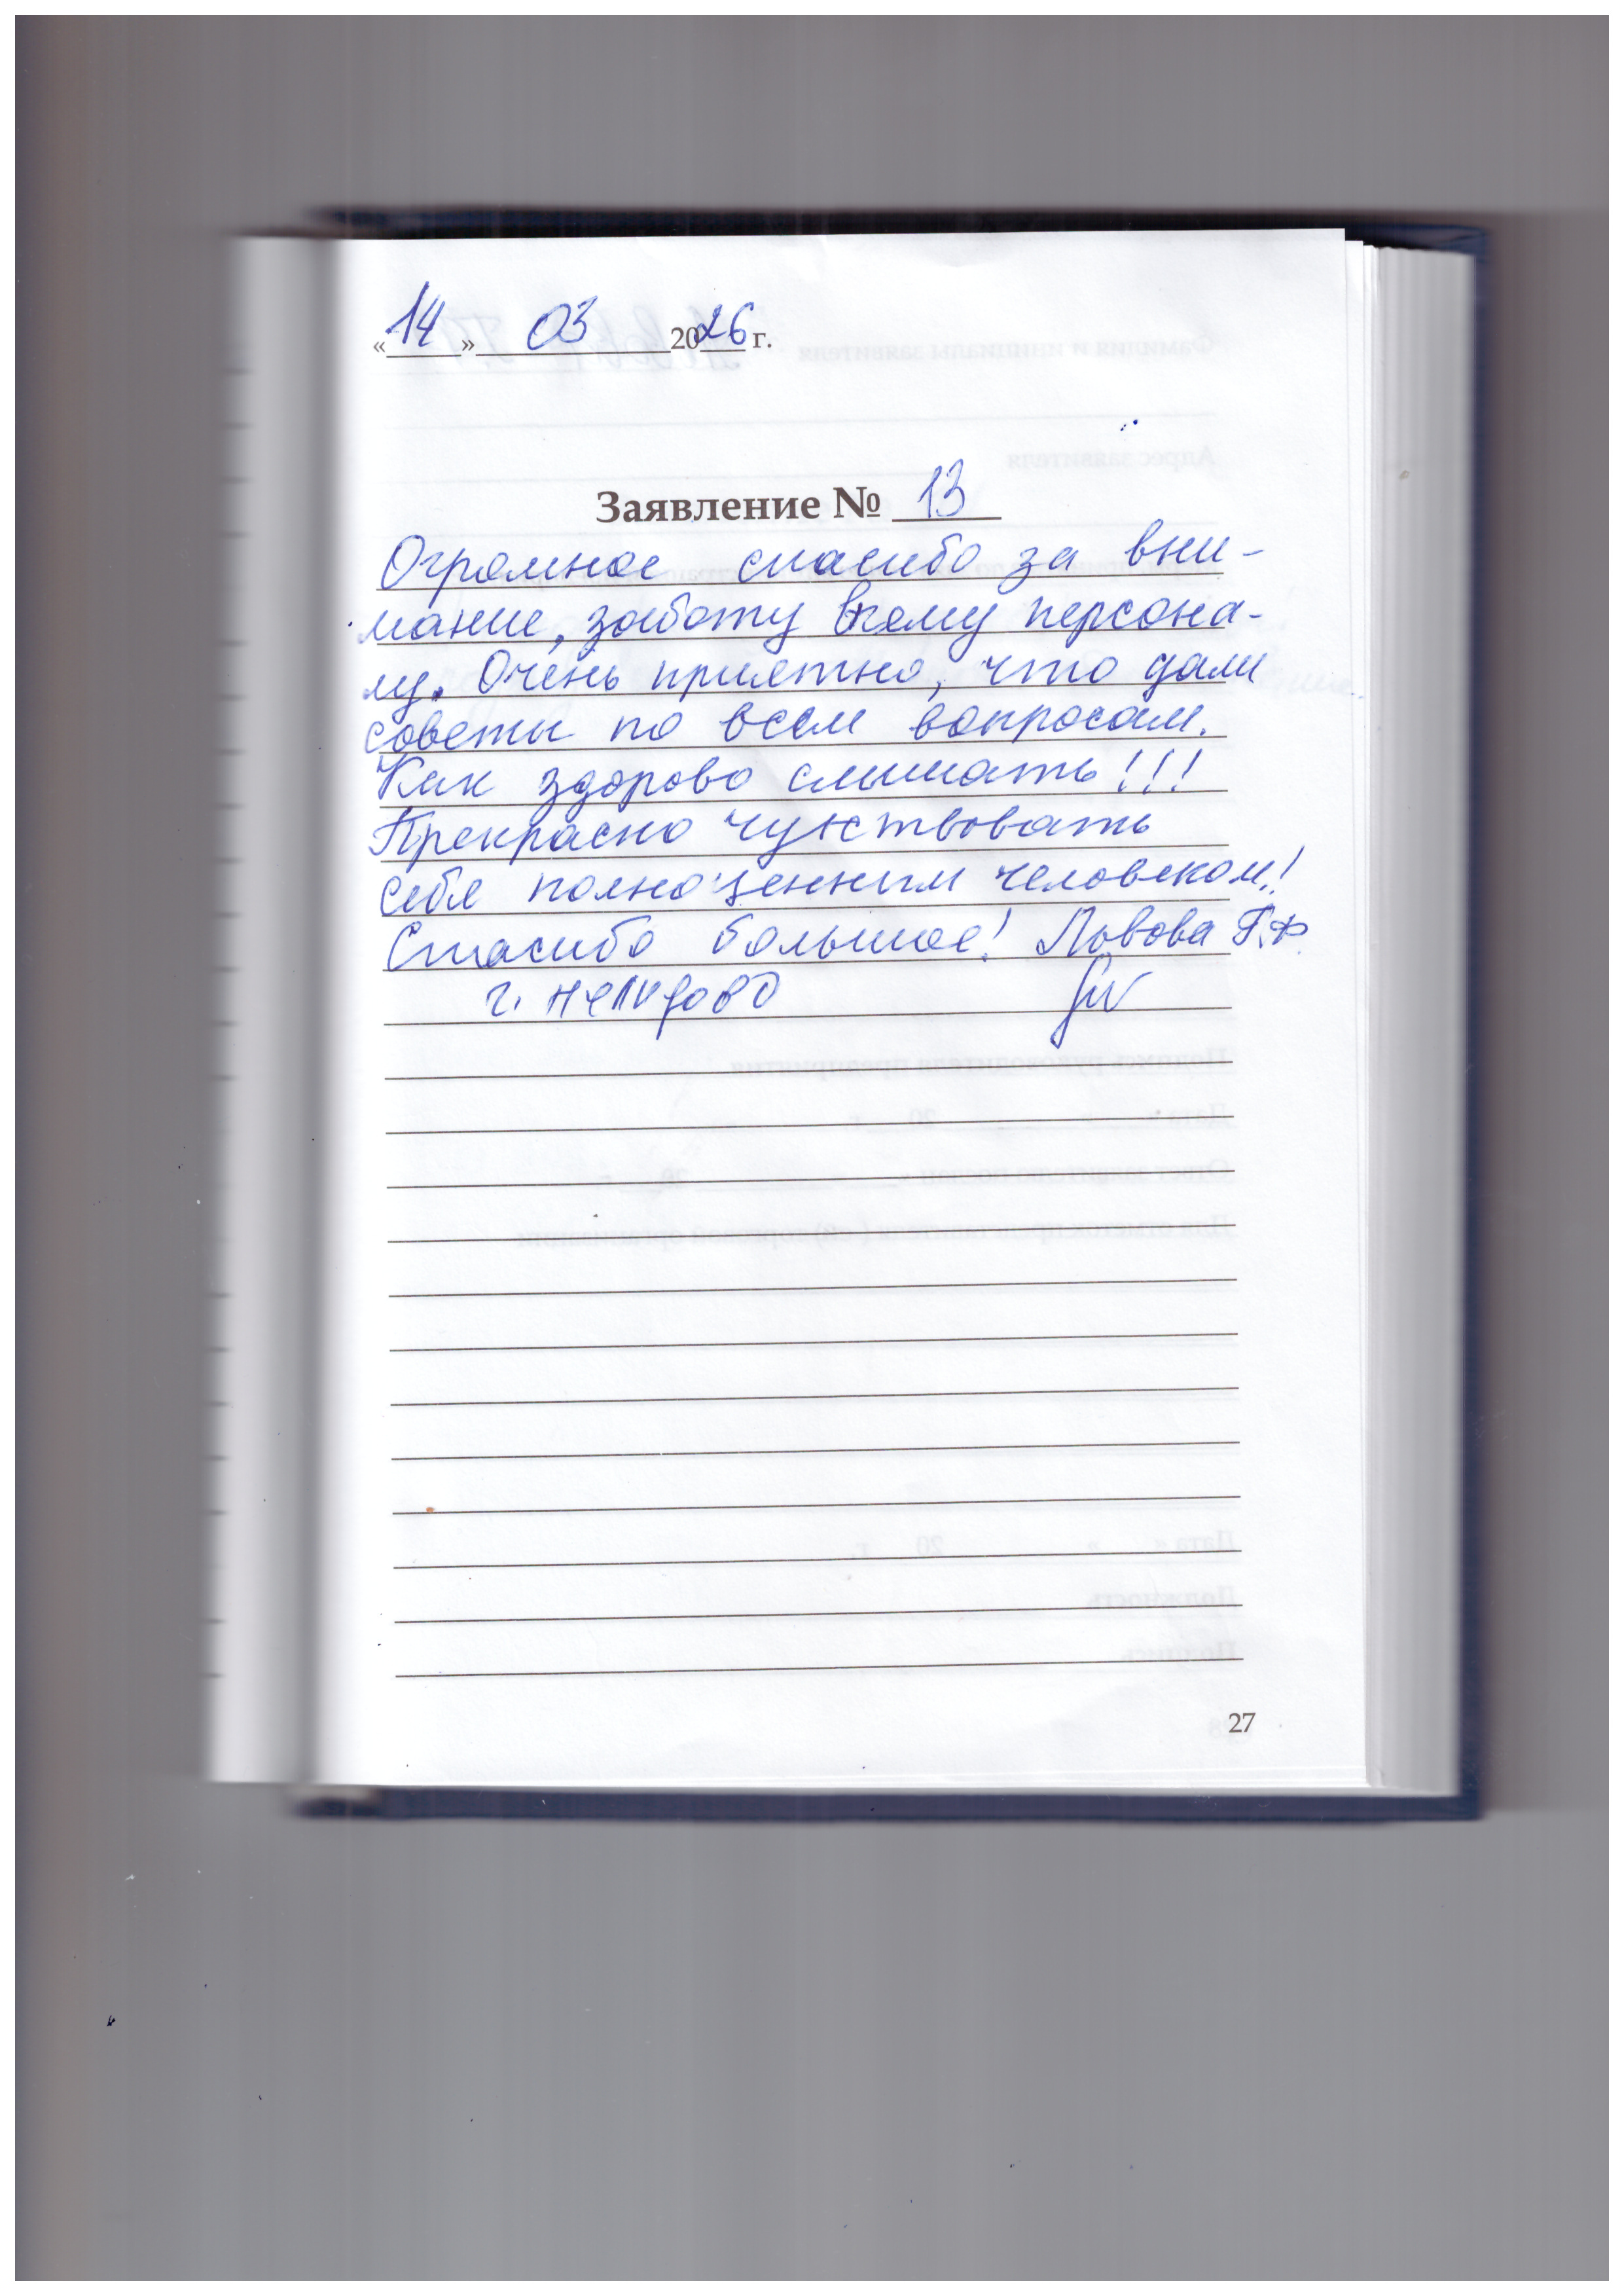 «14» 03 2026 г.
Заявление № 13
Огромное спасибо за вни-
мание, заботу всему персона-
лу. Очень приятно, что дали
советы по всем вопросам.
Как здорово слышать!!!
Прекрасно чувствовать
себя полноценным человеком!
Спасибо большое! Львова Г.Ф.
г. Нелидово
27